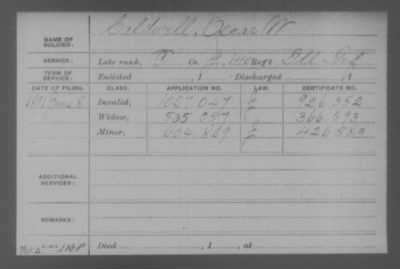 NAME OF SOLDIER: Caldwell, Oscar W
SERVICE: Late rank, Co. J, 140 Reg't Ill Inf
TERM OF SERVICE: Enlisted , 1 Discharged , 1
DATE OF FILING. CLASS. APPLICATION NO. LAW. CERTIFICATE NO.
1891 Invalid, 1027.047 J 926.352
Widow, 535.057 366.593
Minor, 604.869 J 426.583
ADDITIONAL SERVICES:
REMARKS:
Died , 1 , at